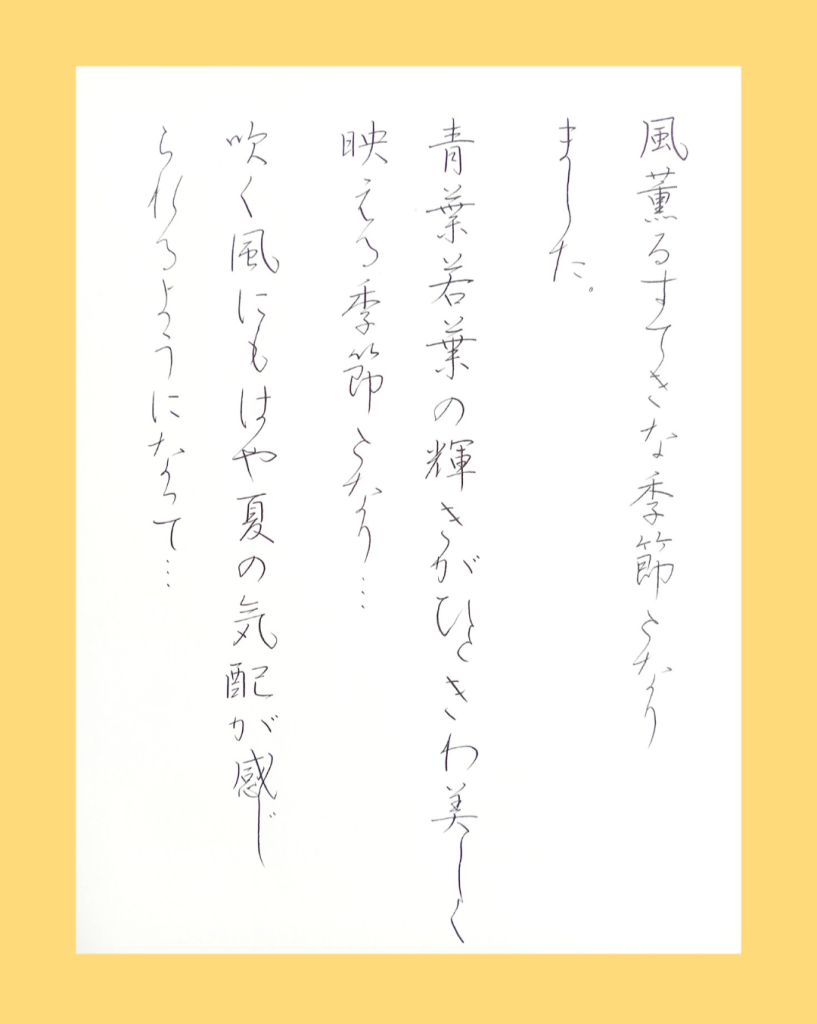 風薫るすてきな季節となり
ました。
青葉若葉の輝きがひときわ美しく
映える季節となり…
吹く風にもはや夏の気配が感じ
られるようになって…